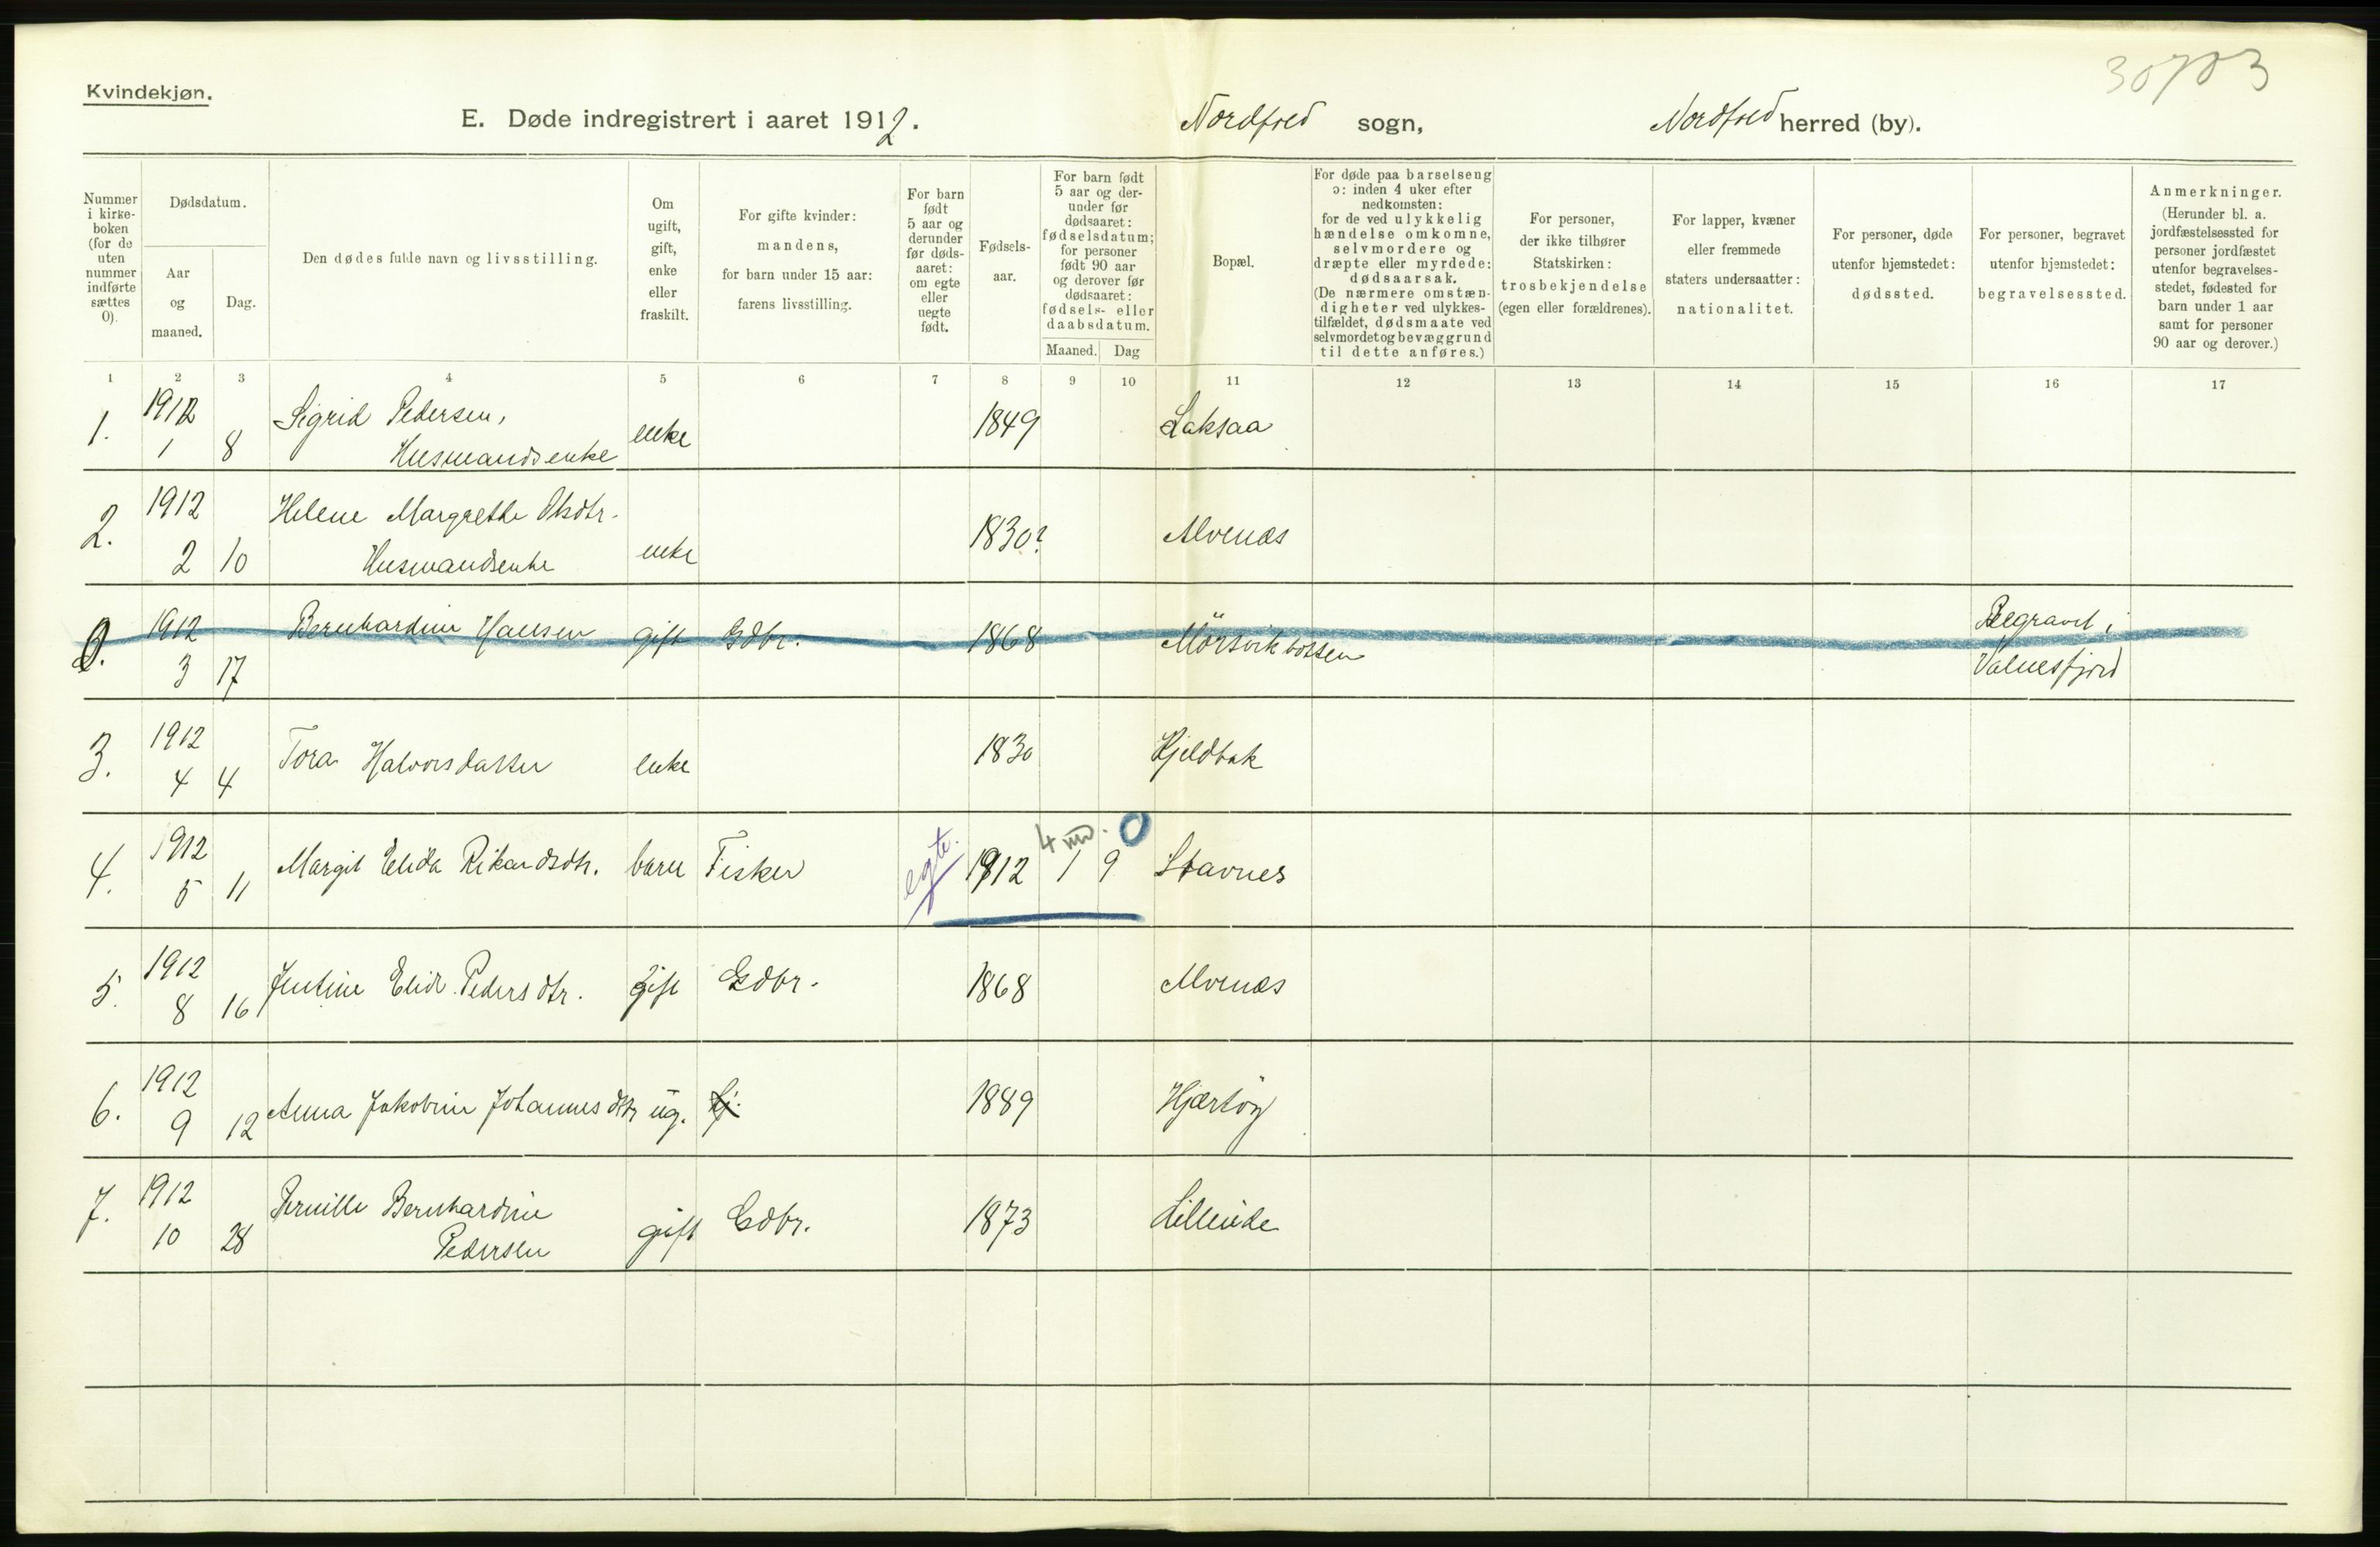 30703
Kvindekjøn.
E. Døde indregistrert i aaret 1912. Nordfold sogn, Nordfold herred (by).
Nummer i kirke-boken (for de uten nummer indførte sættes 0).
Dødsdatum.
Aar og maaned.
Dag.
Den dødes fulde navn og livsstilling.
Om ugift, gift, enke eller fraskilt.
For gifte kvinder: mandens, for barn under 15 aar: farens livsstilling.
For barn født 5 aar og derunder før døds-aaret: om egte eller uegte født.
Fødsels-aar.
For barn født 5 aar og der-under før dødsaaret: fødselsdatum; for personer født 90 aar og derover før dødsaaret: fødsels- eller daabsdatum.
Maaned. Dag
Bopæl.
For døde paa barselseng ɔ: inden 4 uker efter nedkomsten: for de ved ulykkelig hændelse omkomne, selvmordere og dræpte eller myrdede: dødsaarsak. (De nærmere omstæn-digheter ved ulykkes-tilfældet, dødsmaate ved selvmordet og bevæggrund til dette anføres.)
For personer, der ikke tilhører Statskirken: trosbekjendelse (egen eller forældrenes).
For lapper, kvæner eller fremmede staters undersaatter: nationalitet.
For personer, døde utenfor hjemstedet: dødssted.
For personer, begravet utenfor hjemstedet: begravelsessted.
Anmerkninger. (Herunder bl. a. jordfæstelsessted for personer jordfæstet utenfor begravelses-stedet, fødested for barn under 1 aar samt for personer 90 aar og derover.)
1 2 3 4 5 6 7 8 9 10 11 12 13 14 15 16 17
1. 1912 1 8 Sigrid Pedersen, Husmandsenke enke 1849 Laksaa
2. 1912 2 10 Helene Margrethe Olsdtr. Husmandsenke enke 1830? Alvenæs
0. 1912 3 17 Bernhardine Hansen gift Gdbr. 1868 Mörsvikbotten Begravet i Valnesfjord
3. 1912 4 4 Tora Halvorsdatter enke 1830 Kjeldbak
4. 1912 5 11 Margit Elida Rikardsdtr. barn Fisker egte. 1912 4 md. 1 9 0 Stavnes
5. 1912 8 16 Jentine Elid. Pedersdtr. gift Gdbr. 1868 Alvenæs
6. 1912 9 12 Anna Jakobine Johannesdtr ug. 1889 Hjærtöy
7. 1912 10 28 Pernille Bernhardine Pedersen gift Gdbr. 1873